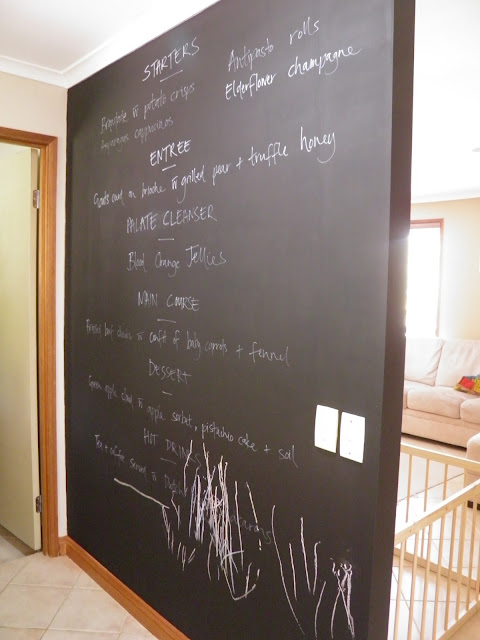 STARTERS
Antipasto rolls
Elderflower champagne
w̄ potato crisps
Asparagus cappuccinos
ENTREE
Goats curd on brioche w̄ grilled pear + truffle honey
PALATE CLEANSER
Blood Orange Jellies
MAIN COURSE
Braised beef cheeks w̄ confit of baby carrots + fennel
DESSERT
Green apple cloud w̄ apple sorbet, pistachio cake + soil
HOT DRINKS
Tea + coffee served w̄